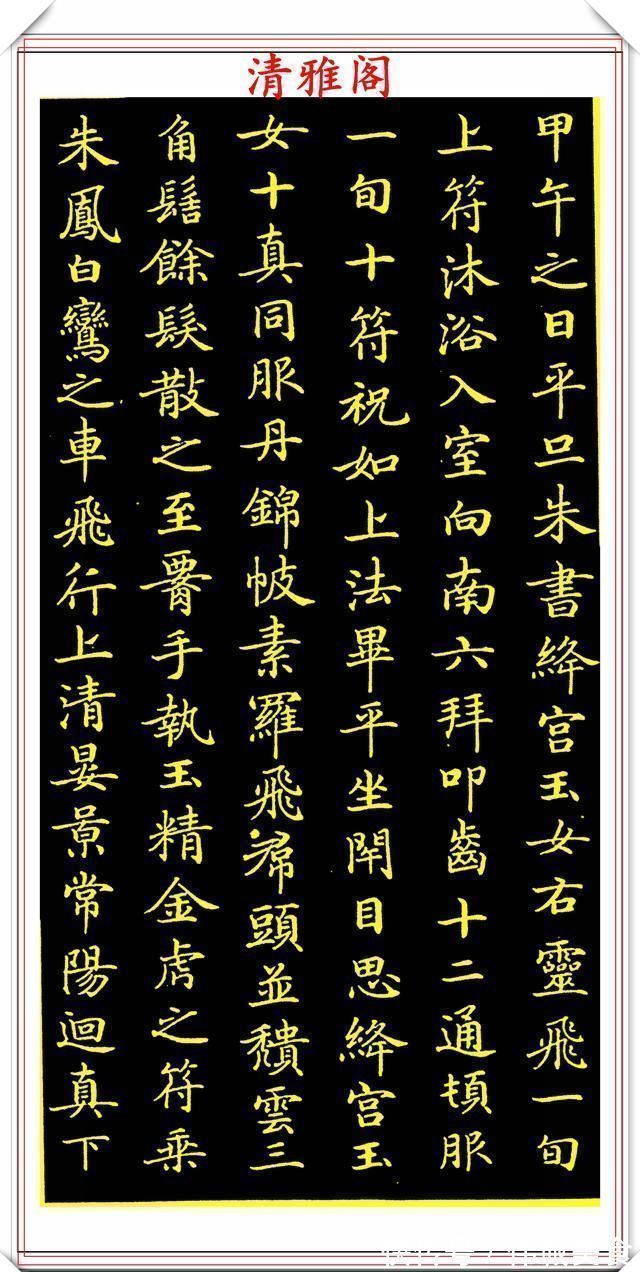 清雅阁
甲午之日平旦朱書絳宮玉女右靈飛一旬
上符沐浴入室向南六拜叩齒十二通頓服
一旬十符祝如上法畢平坐閇目思絳宮玉
女十真同服丹錦帔素羅飛帬頭並頹雲三
角髻餘髮散之至署手執玉精金虎之符乘
朱鳳白鸞之車飛行上清晏景常陽迴真下